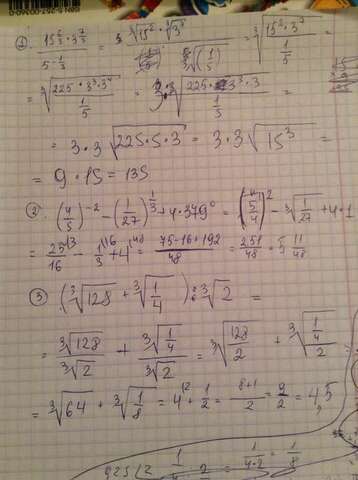 1. 15^(2/3) · 3^(7/3) / 5^(-1/3) = ∛15² · ∛3⁷ / ∛(1/5) = ∛(15² · 3⁷ / (1/5)) =
= ∛(225 · 3³ · 3⁴ / (1/5)) = 3 · 3 ∛(225 · 3 / (1/5)) =
= 3 · 3 ∛(225 · 5 · 3) = 3 · 3 ∛(15³) =
= 9 · 15 = 135
2. (4/5)^(-2) - (1/27)^(1/3) + 4 · 379⁰ = (5/4)² - ∛(1/27) + 4 · 1
= 25/16 - 1/3 + 4 = (75 - 16 + 192)/48 = 251/48 = 5 11/48
3. (∛128 + ∛(1/4)) : ∛2 =
= ∛128/∛2 + ∛(1/4)/∛2 = ∛(128/2) + ∛((1/4)/2) =
= ∛64 + ∛(1/8) = 4 + 1/2 = (8+1)/2 = 9/2 = 4,5
1/(4·2) = 1/8